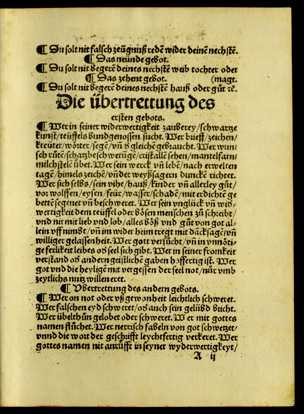 ¶ Du solt nit falsch zeügniß redē wider deinē nechstē.
¶ Das neünde gebot.
¶ Du solt nit begerē deines nechstē weib tochter oder
¶ Das zehent gebot. (magt.
¶ Du solt nit begerē deines nechstē hauß oder gůt ꝛc.
Die übertrettung des
ersten gebots.
¶ Wer in seiner widerwertigkeit zauberey/schwartze
kunst/teüffels bundgenossen sůcht. Wer brieff/zeichen/
kreüter/wörter/segē/vñ ß gleichē gebraucht. Wer wun
schrůtē/schatzbeschwerūge/cristallē sehen/mantelfarn
milchstelē übet. Wer sein werck vñ lebē/nach erwelten
tagē/himels zeichē/vñ der weyßsagern dunckē richtet.
Wer sich selbs/sein vihe/hauß/kinder vñ allerley gůt/
vor wolffen/eysen/feür/wasser/schadē/mit erdichtē ge
bettē segenet vñ beschweret. Wer sein vnglück vñ wid
wertigkeit den teüffel oder bösen menschen zů schreibt/
vnd nit mit lieb vnd lob/alles böß vnd gůt von got al
lein vffnimbt/vñ im wider heim tregt mit dācksagūg vñ
williger gelassenheit. Wer got versůcht/vñ in vnnöti
ge ferlikeit leibes oder seel sich gibt. Wer in seiner fromkeit
verstand oder andern geistliche gaben hoffertig ist. Wer
got vnd die heyligē mit vergessen der seel not/nür vmb
zeytlichs nutz willen eret.
¶ Übertrettung des andern gebots.
¶ Wer on not oder vß gewonheit leichtlich schweret.
Wer falschen eyd schweret/oder auch sein gelübd bricht.
Wer übelthůn gelobet oder schweret. Wer mit gottes
namen flůchet. Wer nerrisch fabeln von got schwetzet/
vnnd die wort der geschrifft leychtfertig verkeret. Wer
gottes namen nit anrůfft in seyner wyderwertigkeyt/
A ij